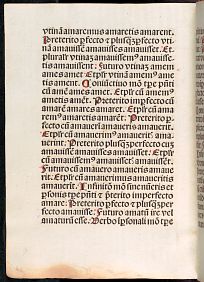 vtinā amaremus amaretis amarent.
Preterito ꝑfecto ⁊ plusq̃ꝑfecto vti
nā amauissē amauisses amauisset. Et
plurałr vtinaȝ amauissem⁹ amauisse-
tis amauissent. Futuro vtinaȝ amem
ames amet Et ꝑłr vtinā amem⁹ ame
tis ament. Coniūctiuo mō tꝑe pn̄ti
cū amē ames amet. Et ꝑłr cū amem⁹
ametis amēt. Preterito imꝑfecto cū
amarē amares amaret. Et ꝑłr cū ama
rem⁹ amaretis amarēt. Preterito ꝑ-
fecto cū amauerī amaueris amauerit.
Et ꝑłr cū amauerim⁹ amaueritis ama
uerint. Preterito plusq̃ꝑfecto cuȝ
amauissē amauisses amauisset. Et ꝑłr
cū amauissem⁹ amauissetis amauissēt.
Futuro cū amauero amaueris amaue
rit. Et ꝑłr cū amauerim⁹ amaueritis
amauerīt. Infinito mō sine nūeris et
ꝑsonis tꝑe pn̄ti ⁊ p̄terito imperfecto
amare: Preterito ꝑfecto ⁊ plusq̃ꝑer
fecto amauisse. Futuro amatū ire vel
amaturū esse. Verbo īpsonali mō tꝑe